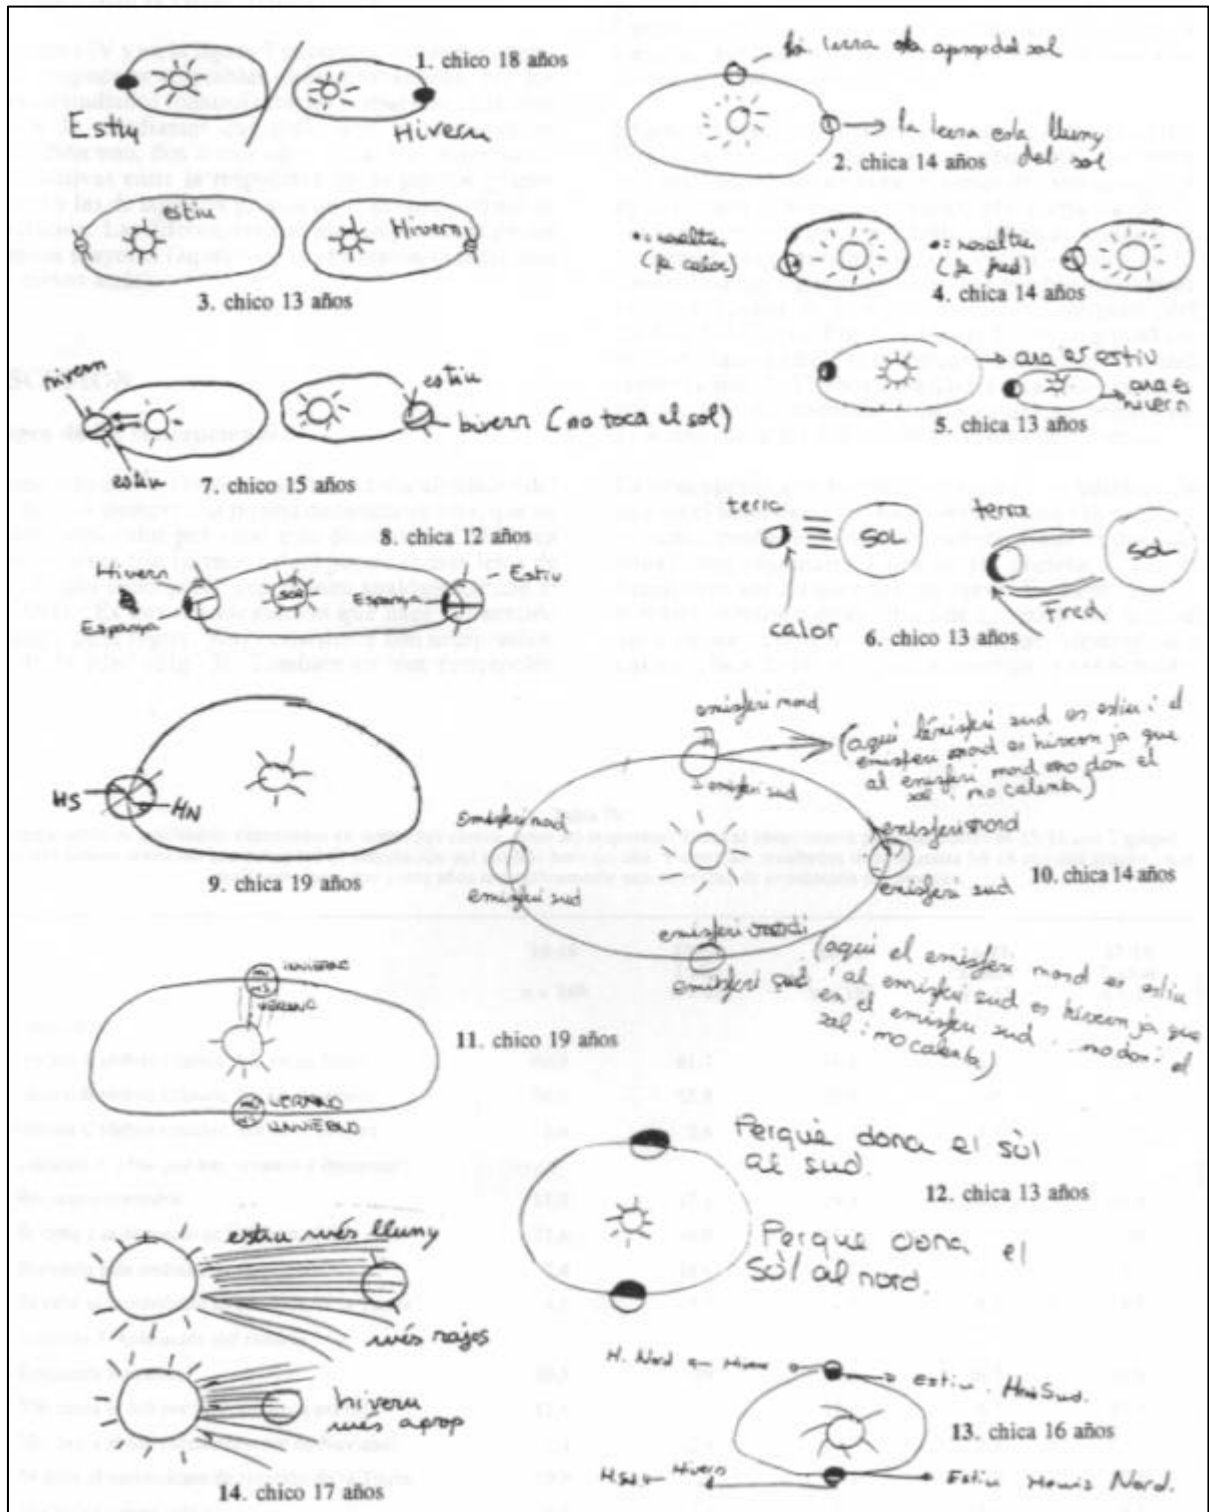 1. chico 18 años
Estiu
Hivern
la terra esta aprop del sol
la terra esta lluny
del sol
2. chica 14 años
estiu
Hivern
3. chico 13 años
nosaltres
(fa calor)
nosaltres
(fa fred)
4. chica 14 años
ara es estiu
ara es
hivern
5. chica 13 años
hivern
estiu
estiu
hivern (no toca el sol)
7. chico 15 años
8. chica 12 años
Hivern
Espanya
SOL
Espanya
Estiu
terra
SOL
calor
terra
SOL
Fred
6. chico 13 años
HS
HN
9. chica 19 años
emisferi nord
emisferi sud
(aqui l'emisferi sud es estiu i el
emisferi nord es hivern ja que
al emisferi nord no don el
sol i no calenta)
Emisferi nord
emisferi sud
emisferi nord
emisferi sud
10. chica 14 años
emisferi nord
emisferi sud
(aqui el emisferi nord es estiu
i al emisferi sud es hivern ja que
en el emisferi sud no don el
sol i no calenta)
VERANO
11. chico 19 años
VERANO
Perquè dona el sòl
al sud.
12. chica 13 años
Perque dona el
sòl al nord.
estiu més lluny
més rajos
hivern
més aprop
14. chico 17 años
H. Nord
Estiu
Sud.
13. chica 16 años
Hivern
Estiu Nord.